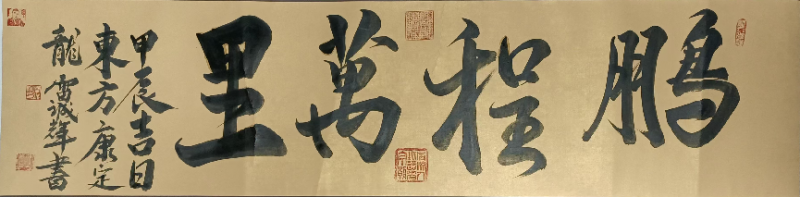 鵬程萬里
甲辰吉日
東方康定
龍雷誠聲書